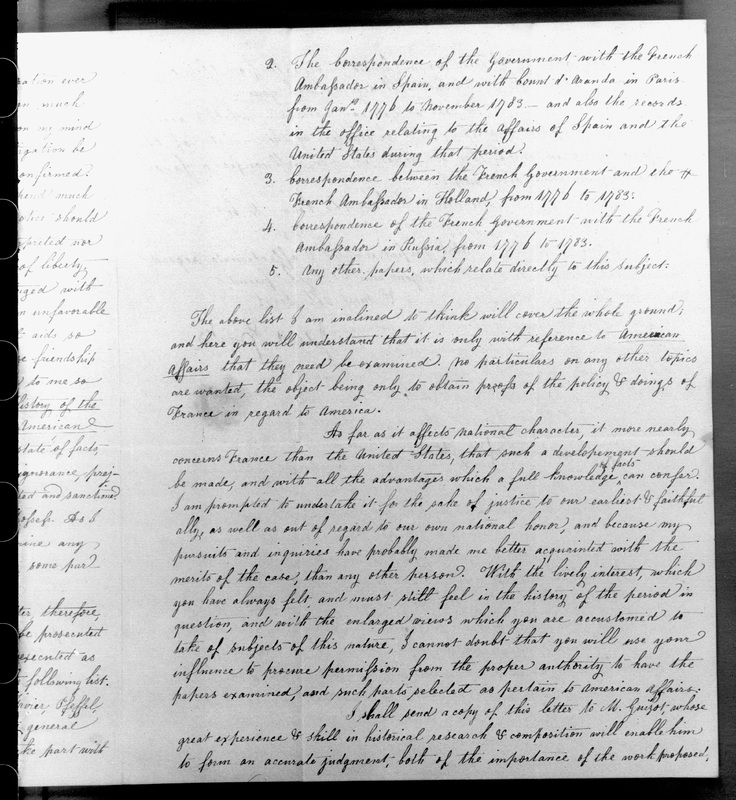 ration ever
n much
on my mind
igation be
onfirmed.
hend much
otice should
of liberty
iged with
n unfavorable
aids so
e friendship
to me so
istory of the
American
state of facts
ignorance, prej-
ted and sanctioned
As I
ine any
some par
ter, therefore,
be prosecuted
executed as
following list.
general
the part with
2. The Correspondence of the Government with the French
Ambassador in Spain, and with Count d'Aranda in Paris
from Jany. 1776 to November 1783. — and also the records
in the office relating to the affairs of Spain and the
United States during that period.
3. Correspondence between the French Government and the
French Ambassador in Holland, from 1776 to 1783.
4. Correspondence of the French Government with the French
Ambassador in Russia, from 1776 to 1783.
5. Any other papers, which relate directly to this subject:
The above list I am inclined to think will cover the whole ground;
and here you will understand that it is only with reference to American
affairs that they need be examined. No particulars on any other topics
are wanted, the object being only to obtain proofs of the policy & doings of
France in regard to America.
As far as it affects national character, it more nearly
concerns France than the United States, that such a developement should
be made, and with all the advantages which a full knowledge of facts can confer.
I am prompted to undertake it for the sake of justice to our earliest & faithful
ally, as well as out of regard to our own national honor, and because my
pursuits and inquiries have probably made me better acquainted with the
merits of the case, than any other person. With the lively interest, which
you have always felt and must still feel in the history of the period in
question, and with the enlarged views which you are accustomed to
take of subjects of this nature, I cannot doubt that you will use your
influence to procure permission from the proper authority to have the
papers examined, and such parts selected as pertain to American Affairs.
I shall send a copy of this letter to M. Guizot whose
great experience & skill in historical research & composition will enable him
to form an accurate judgment both of the importance of the work proposed,